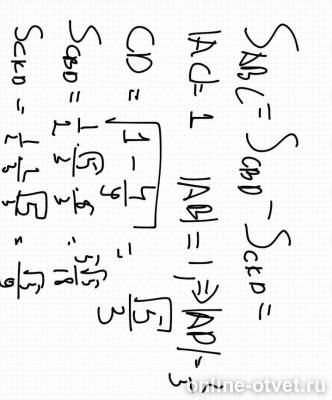 S_ABC = S_CBD − S_CKD =
|AC| = 1 |AB| = 1, => |AD| = 2/3
CD = √(1 − 4/9) = √5/3
S_CBD = 1/2 · √5/3 · 5/3 = 5√5/18
S_CKD = 1/2 · 2/3 · √5/3 = √5/9
online-otvet.ru